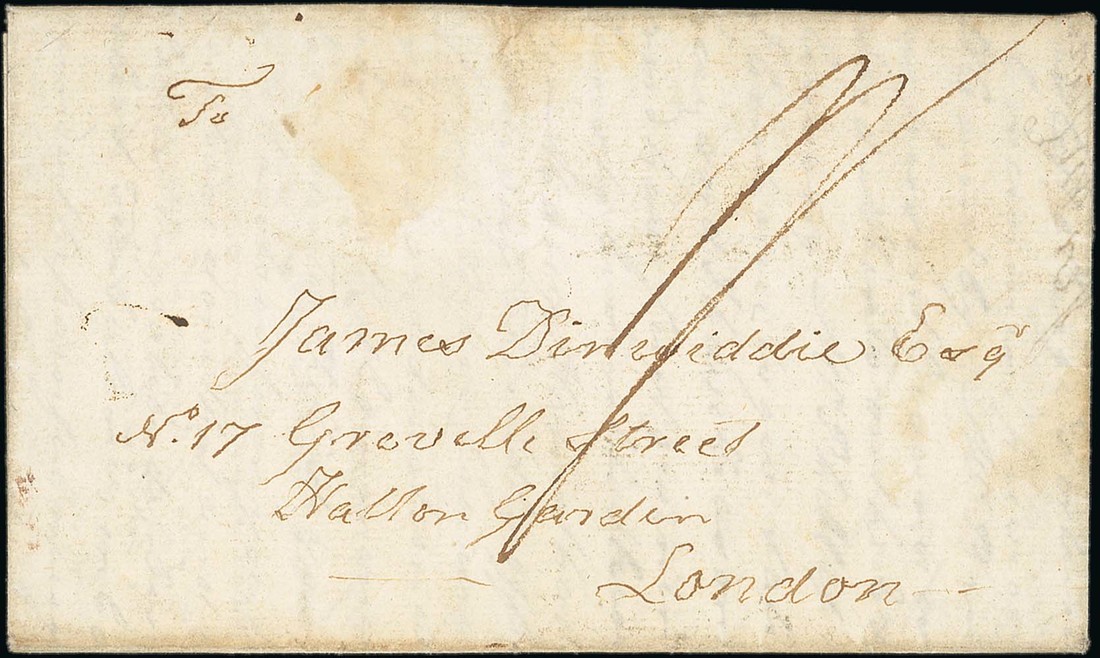 To
James Dinwiddie Esqr
No. 17 Grevelle Street
Hatton Gardin
London